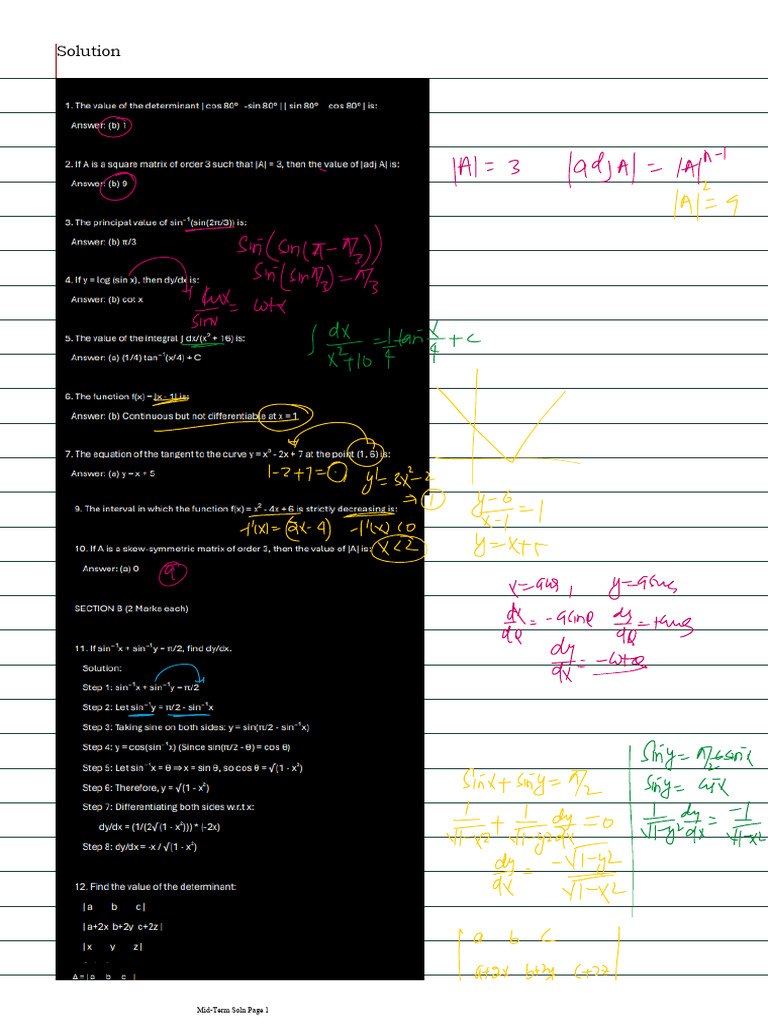 Solution
1. The value of the determinant | cos 80° -sin 80° | | sin 80° cos 80° | is:
Answer: (b) 1
2. If A is a square matrix of order 3 such that |A| = 3, then the value of |adj A| is:
|A| = 3 |adj A| = |A|ⁿ⁻¹
Answer: (b) 9
|A|² = 9
3. The principal value of sin⁻¹(sin(2π/3)) is:
Answer: (b) π/3
sin⁻(sin(π - π/3))
sin⁻(sin π/3) = π/3
4. If y = log (sin x), then dy/dx is:
Answer: (b) cot x
cosx/sinx = cotx
5. The value of the integral ∫ dx/(x² + 16) is:
∫ dx/x²+10 = 1/4 tan⁻ x/4 + c
Answer: (a) (1/4) tan⁻¹(x/4) + C
6. The function f(x) = |x - 1| is:
Answer: (b) Continuous but not differentiable at x = 1
7. The equation of the tangent to the curve y = x³ - 2x + 7 at the point (1, 6) is:
Answer: (a) y = x + 5
1-2+7=
y' = 3x²-2
⇒ 1
y-6/x-1 = 1
y = x+5
9. The interval in which the function f(x) = x² - 4x + 6 is strictly decreasing is:
f'(x) = (2x-4) f'(x) < 0
x < 2
10. If A is a skew-symmetric matrix of order 3, then the value of |A| is:
Answer: (a) 0
a
dy/dx = -cotθ
SECTION B (2 Marks each)
11. If sin⁻¹x + sin⁻¹y = π/2, find dy/dx.
Solution:
Step 1: sin⁻¹x + sin⁻¹y = π/2
Step 2: Let sin⁻¹y = π/2 - sin⁻¹x
Step 3: Taking sine on both sides: y = sin(π/2 - sin⁻¹x)
Step 4: y = cos(sin⁻¹x) (Since sin(π/2 - θ) = cos θ)
Step 5: Let sin⁻¹x = θ ⇒ x = sin θ, so cos θ = √(1 - x²)
Step 6: Therefore, y = √(1 - x²)
Step 7: Differentiating both sides w.r.t x:
dy/dx = (1/(2√(1 - x²))) * (-2x)
Step 8: dy/dx = -x / √(1 - x²)
sin⁻x + sin⁻y = π/2
1/√1-x² + 1/√1-y² dy/dx = 0
dy/dx = -√1-y²/√1-x²
sin⁻y = cos⁻x
1/√1-y² dy/dx = -1/√1-x²
12. Find the value of the determinant:
| a b c |
| a+2x b+2y c+2z |
| x y z |
Δ = | a b c |
| a b c |
| a+2x b+2y c+2z |
Mid-Term Soln Page 1